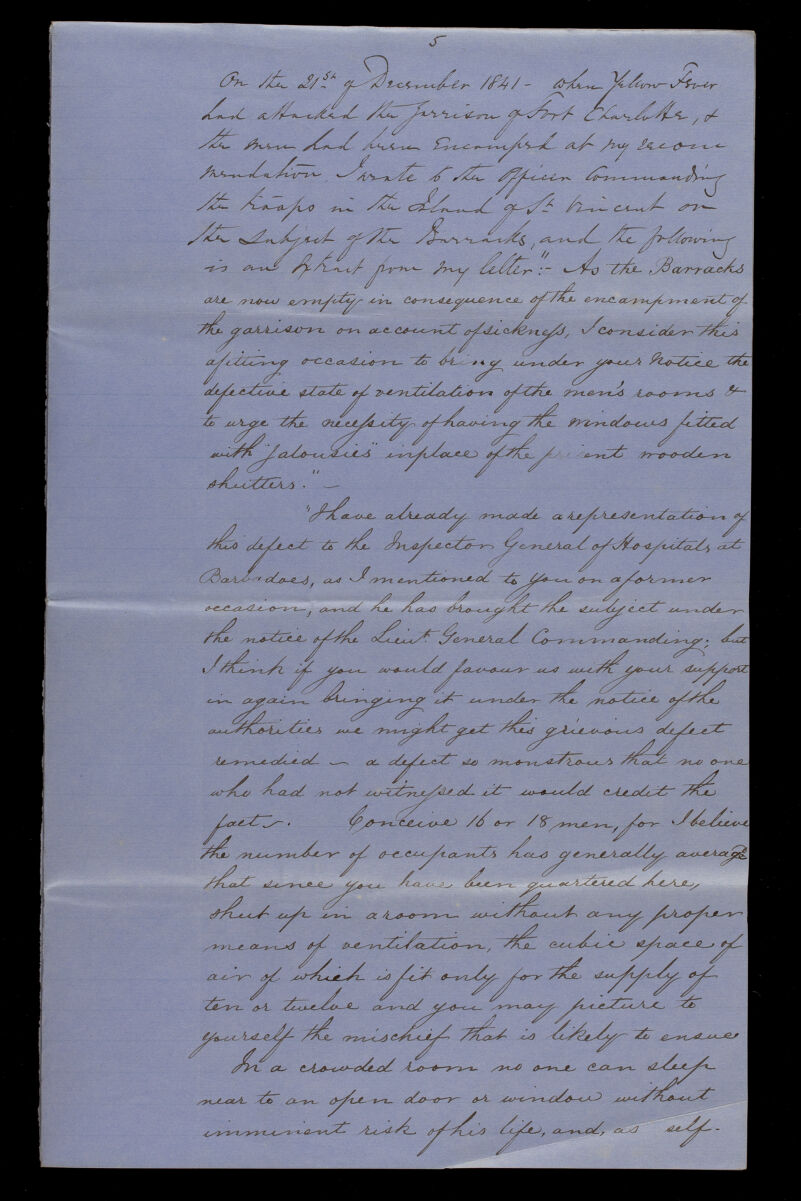 5
On the 21st of December 1841 - when Yellow Fever
had attacked the Garrison of Fort Charlotte, &
the men had been encamped at my recom
mendation I wrote to the Officer Commanding
the troops in the Island of St Vincent on
the subject of the Barracks, and the following
is an extract from my letter":- As the Barracks
are now empty in consequence of the encampment of
the garrison on account of sickness, I consider this
a fitting occasion to bring under your Notice the
defective state of ventilation of the men's rooms &
to urge the necessity of having the windows fitted
with "Jalousies" in place of the present wooden
shutters." -
"I have already made a representation of
this defect to the Inspector General of Hospitals at
Barbadoes, as I mentioned to you on a former
occasion, and he has brought the subject under
the notice of the Lieut. General Commanding; but
I think if you would favour us with your support
in again bringing it under the notice of the
authorities we might get this grievous defect
remedied - a defect so monstrous that no one
who had not witnessed it would credit the
fact. Conceive 16 or 18 men, for I believe
the number of occupants has generally averag'd
that since you have been quartered here,
shut up in a room without any proper
means of ventilation, the cubic space of
air of which is fit only for the supply of
ten or twelve and you may picture to
yourself the mischief that is likely to ensue
In a crowded room no one can sleep
near to an open door or window without
imminent risk of his life, and, as self-